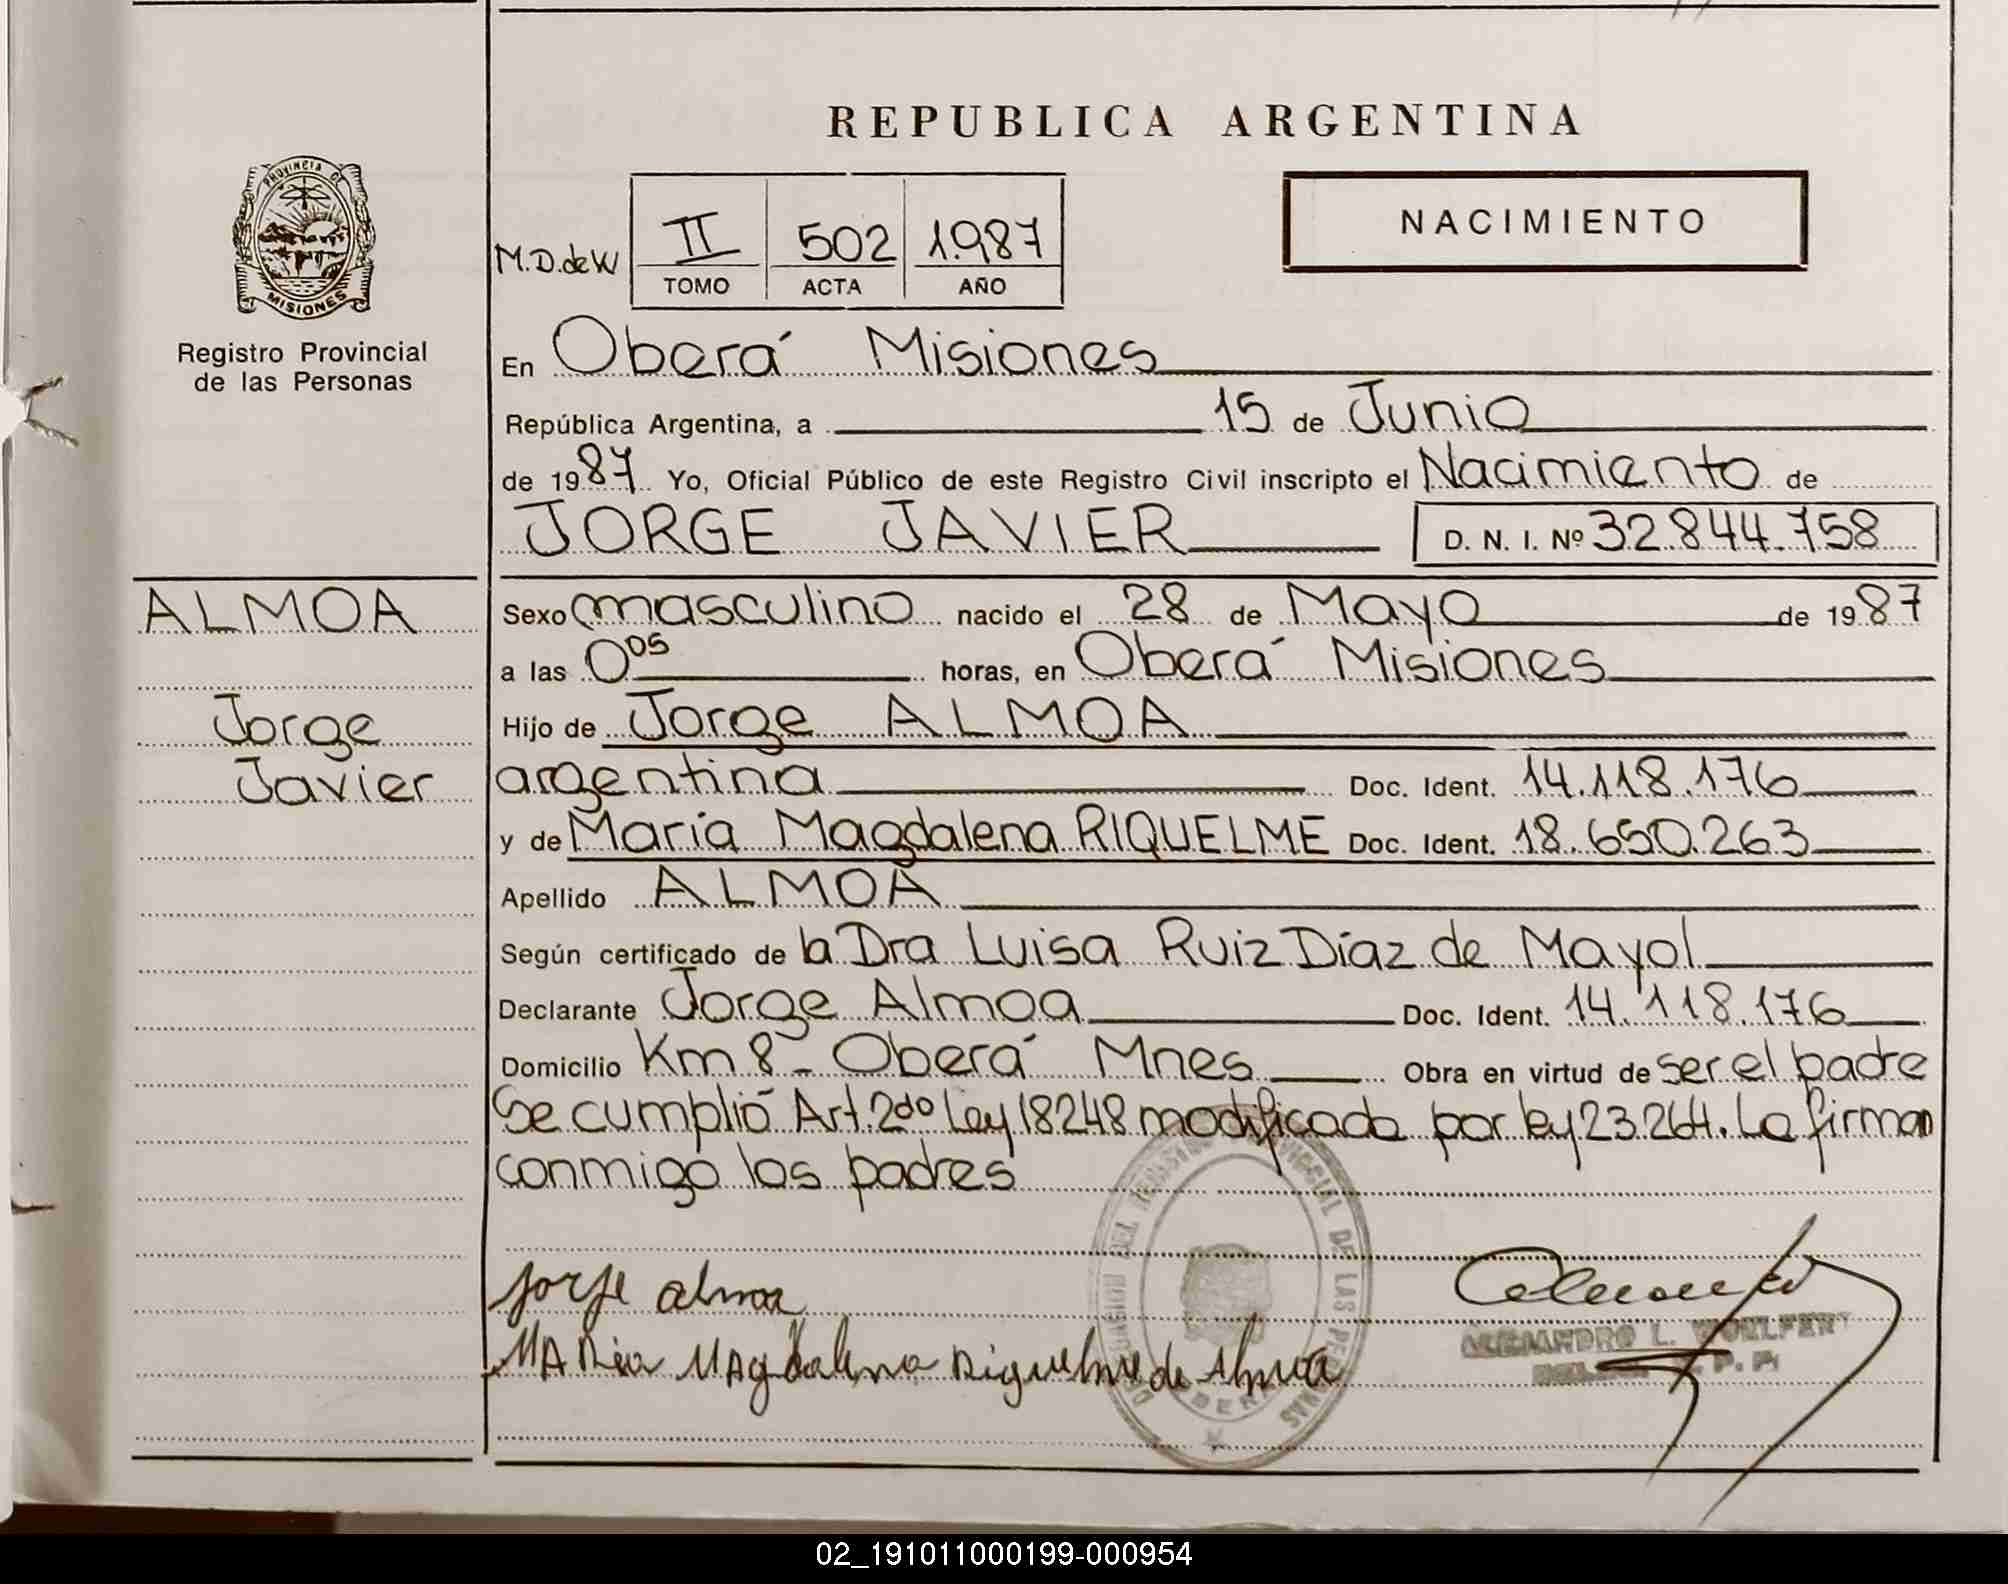 REPUBLICA ARGENTINA
PROVINCIA DE
MISIONES
Registro Provincial
de las Personas
M.D.deW
II 502 1.987
TOMO ACTA AÑO
NACIMIENTO
En Oberá Misiones
República Argentina, a 15 de Junio
de 1987 Yo, Oficial Público de este Registro Civil inscripto el Nacimiento de
JORGE JAVIER D. N. I. Nº 32.844.758
ALMOA
Jorge
Javier
Sexo masculino nacido el 28 de Mayo de 1987
a las 0 05 horas, en Oberá Misiones
Hijo de Jorge ALMOA
argentina Doc. Ident. 14.118.176
y de María Magdalena RIQUELME Doc. Ident. 18.650.263
Apellido ALMOA
Según certificado de la Dra Luisa Ruiz Díaz de Mayol
Declarante Jorge Almoa Doc. Ident. 14.118.176
Domicilio Km 8 - Oberá Mnes Obra en virtud de ser el padre
Se cumplió Art. 2do Ley 18248 modificada por ley 23.264. La firman
conmigo los padres
Jorje almoa
MARia MAgdalena Riquelme de Almoa
ALEJANDRO L. WOELFERT
02_191011000199-000954